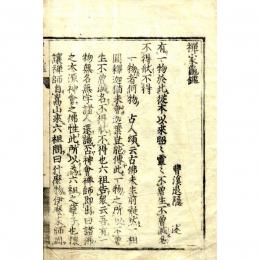 禪家龜鑑
曹溪退隱 述
有一物於此從本以來昭〻靈〻不曾生不曾滅名
不得狀不得
一物者何物 古人頌云古佛未生前凝然一相
圓釋迦猶未會迦葉豈能傳此一物之所以不曾
生不曾滅名不得狀不得也六祖告衆云吾有一
物無名無字諸人還識否神會禪師即出曰諸佛
之本源神會之佛性此所以爲六祖之孽子也懷
讓禪師自嵩山來六祖問曰什麽物伊麽來師